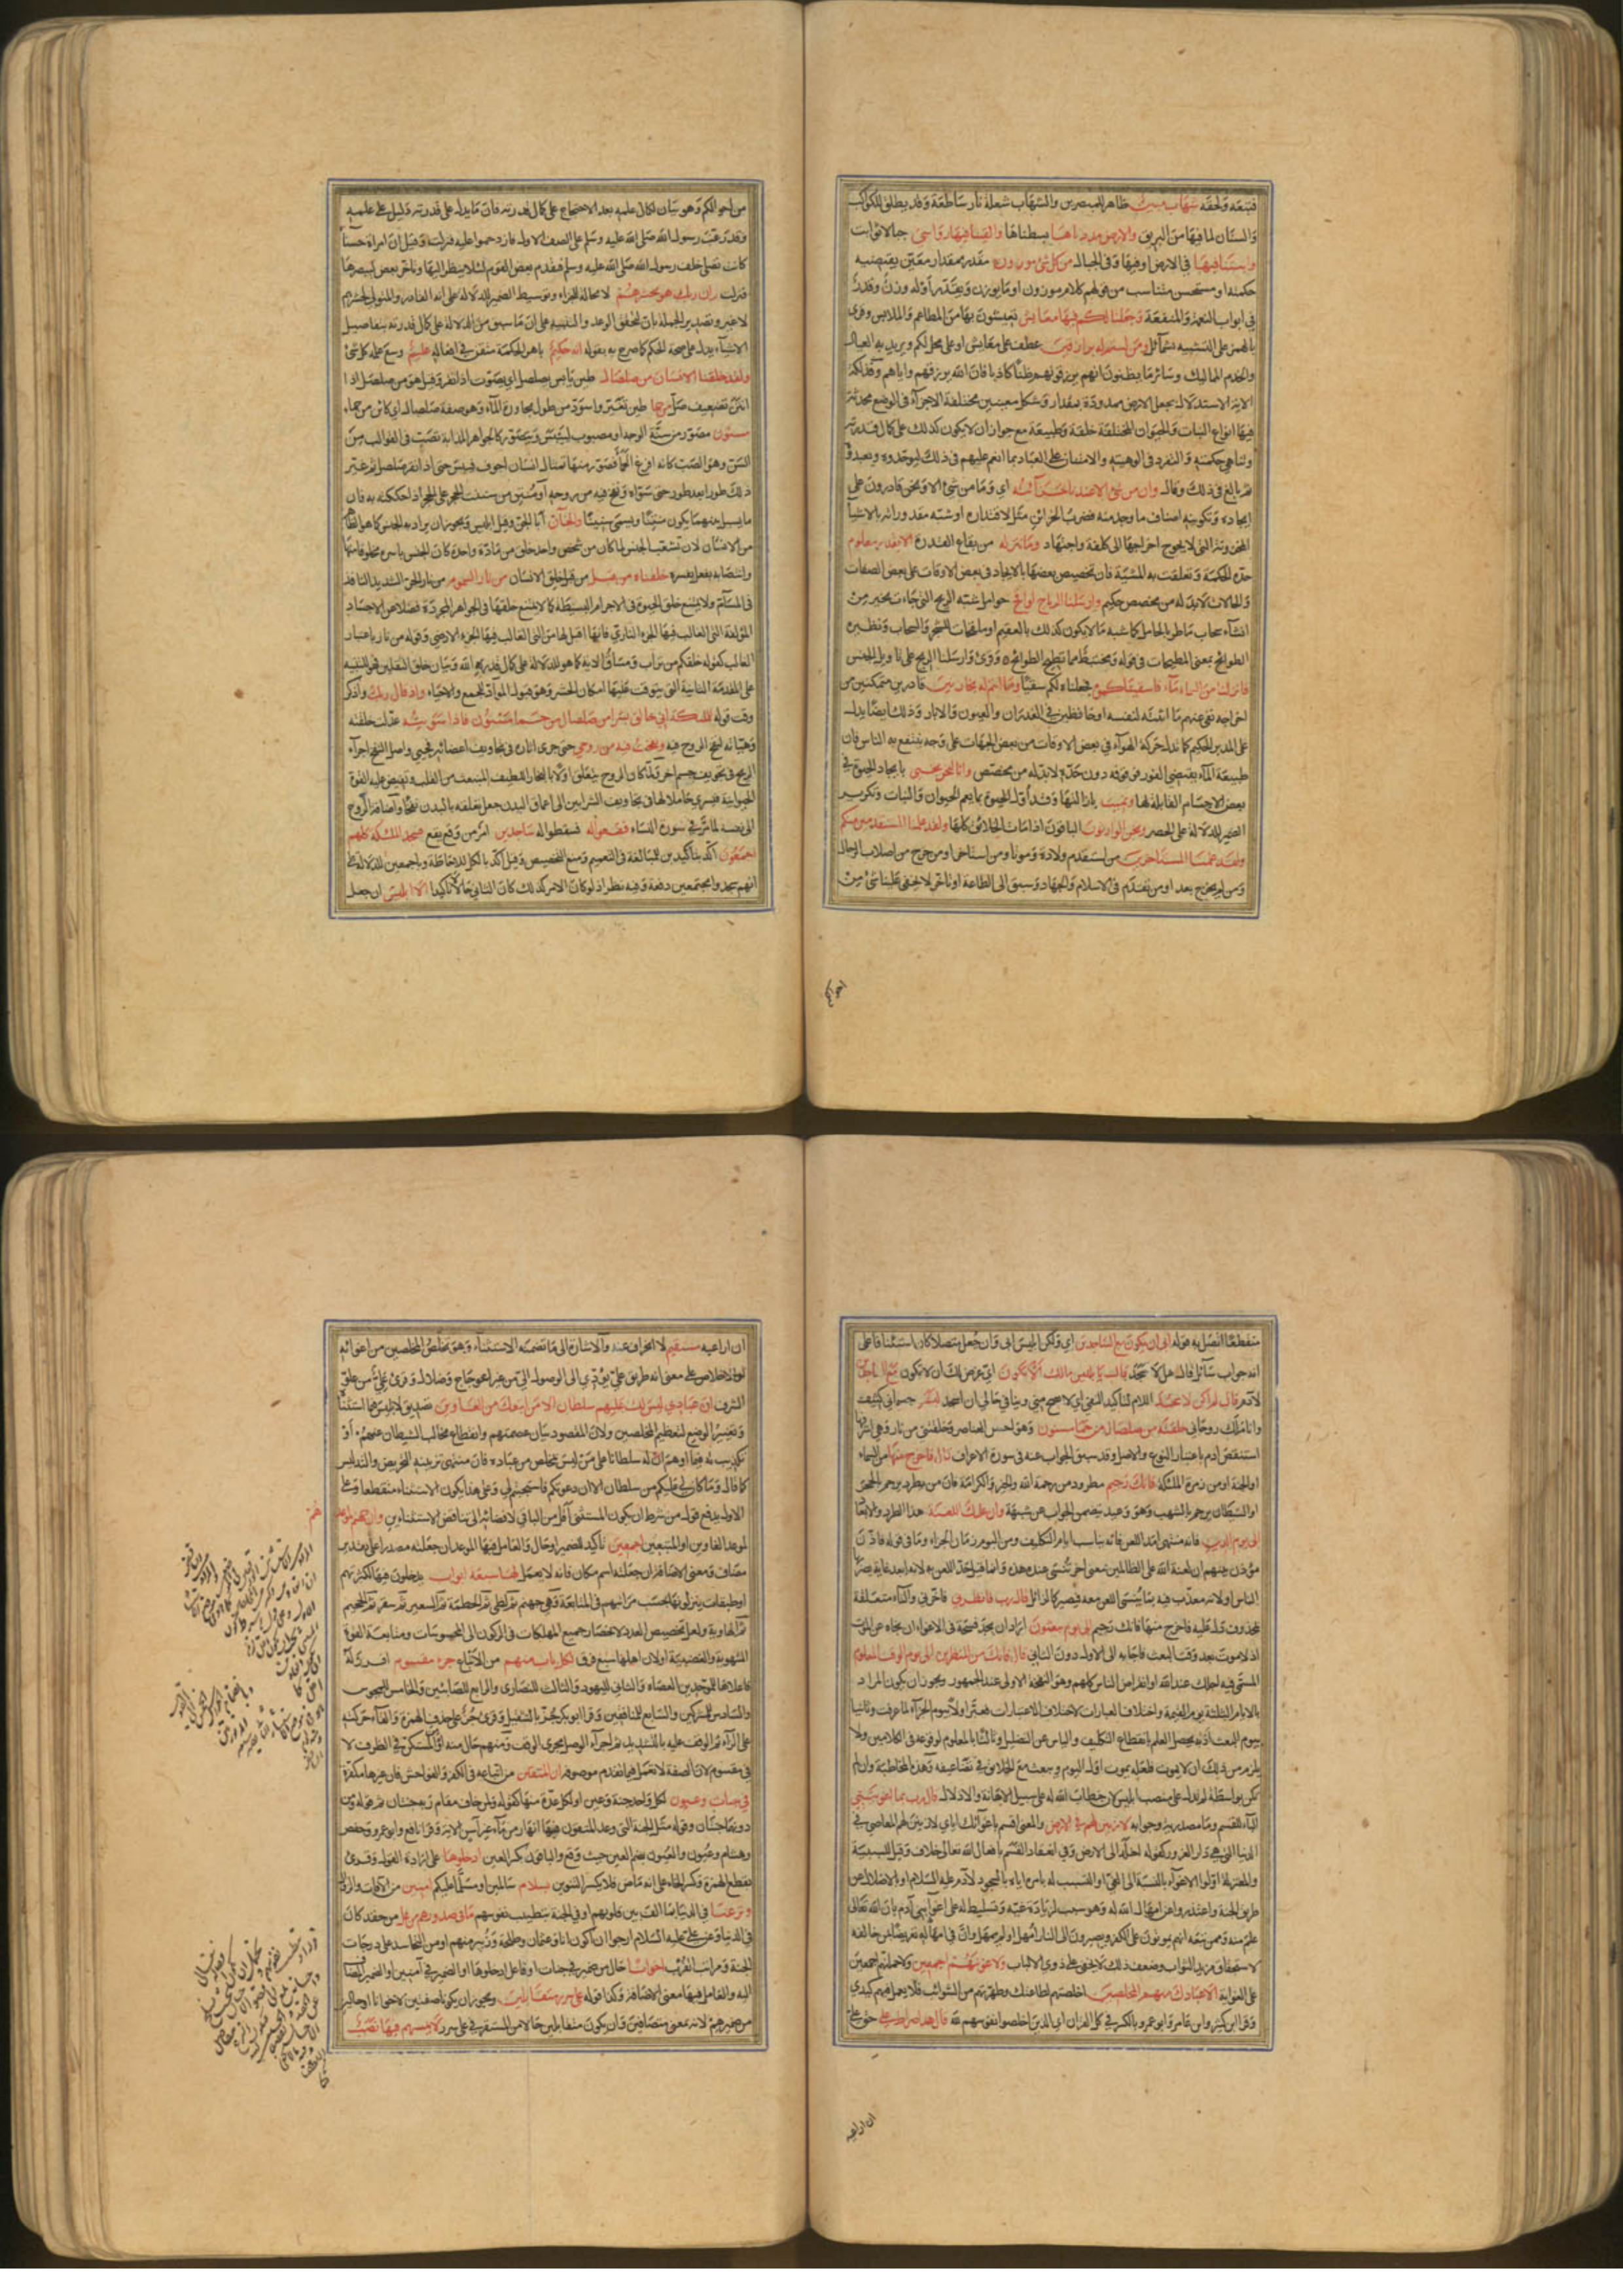 فتبعه ولحقه شهاب مبين ظاهر للمبصرين والشهاب شعلة نار ساطعة وقد يطلق للكواكب
والسنان لما فيها من البريق والارض مددناها بسطناها والقينا فيها رواسى جبالا ثوابت
وانبتنا فيها فى الارض او فيها وفى الجبال من كل شئ موزون مقدر بمقدار معين يقتضيه
حكمته او مستحسن متناسب من قولهم كلام موزون او ما يوزن ويقدر او له وزن وقدر
فى ابواب النعمة والمنفعة وجعلنا لكم فيها معايش تعيشون بها من المطاعم والملابس وقرى
بالهمز على التشبيه بشمائل ومن لستم له برازقين عطف على معايش او على محل لكم ويريد به العيال
والخدم والمماليك وسائر ما يظنون انهم يرزقونهم ظنا كاذبا فان الله يرزقهم واياهم وفذلكة
الاية الاستدلال بجعل الارض ممدودة بمقدار وشكل معينين مختلفة الاجزاء فى الوضع محدثة
فيها انواع النبات والحيوان المختلفة خلقة وطبيعة مع جواز ان لا يكون كذلك على كمال قدرته
وتناهى حكمته والتفرد فى الوهيته والامتنان على العباد بما انعم عليهم فى ذلك ليوحدوه ويعبدوه
ثم بالغ فى ذلك وقال وان من شئ الا عندنا خزائنه اى وما من شئ الا ونحن قادرون على
ايجاده وتكوينه اضعاف ما وجد منه فضرب الخزائن مثلا لاقتداره او شبه مقدوراته بالاشياء
المخزونة التى لا يحوج اخراجها الى كلفة واجتهاد وما ننزله من بقاع القدرة الا بقدر معلوم
حده الحكمة وتعلقت به المشية فان تخصيص بعضها بالايجاد فى بعض الاوقات على بعض الصفات
والحالات لا بد له من مخصص حكيم وارسلنا الرياح لواقح حوامل شبه الريح التى جاءت بخير من
انشاء سحاب ماطر بالحامل كما شبه ما لا يكون كذلك بالعقيم او ملقحات للشجر والسحاب ونظيره
الطوائح بمعنى المطيحات فى قوله ومختبط مما تطيح الطوائح وقرئ وارسلنا الريح على تاويل الجنس
فانزلنا من السماء ماء فاسقيناكموه فجعلناه لكم سقيا وما انتم له بخازنين قادرين متمكنين من
اخراجه نفى عنهم ما اثبته لنفسه او حافظين فى الغدران والعيون والابار وذلك ايضا يدل
على المدبر الحكيم كما تدل حركة الهواء فى بعض الاوقات من بعض الجهات على وجه ينتفع به الناس فان
طبيعة الماء يقتضى الغور فوقوفه دون حده لا بد له من مخصص وانا لنحن نحيى بايجاد الحيوة فى
بعض الاجسام القابلة لها ونميت بازالتها وقد اول الحيوة بما يعم الحيوان والنبات وتكرير
الضمير للدلالة على الحصر ونحن الوارثون الباقون اذا مات الخلائق كلها ولقد علمنا المستقدمين منكم
ولقد علمنا المستاخرين من استقدم ولادة وموتا ومن استاخر او من خرج من اصلاب الرجال
ومن لم يخرج بعد او من تقدم فى الاسلام والجهاد وسبق الى الطاعة او تاخر لا يخفى علينا شئ من
احوالكم
من احوالكم وهو بيان لكمال علمه بعد الاحتجاج على كمال قدرته فان ما يدل على قدرته دليل على علمه
وقد رغب رسول الله صلى الله عليه وسلم على الصف الاول فازدحموا عليه فنزلت وقيل ان امراة حسناء
كانت تصلى خلف رسول الله صلى الله عليه وسلم فتقدم بعض القوم لئلا ينظر اليها وتاخر بعض ليبصرها
فنزلت وان ربك هو يحشرهم لا محالة للجزاء وتوسيط الضمير للدلالة على انه القادر والمتولى لحشرهم
لا غير وتصدير الجملة بان لتحقيق الوعد والتنبيه على ان ما سبق من الدلالة على كمال قدرته بتفاصيل
الاشياء يدل على صحة الحكم كما صرح به بقوله انه حكيم باهر الحكمة متقن فى افعاله عليم وسع علمه كل شئ
ولقد خلقنا الانسان من صلصال طين يابس يصلصل اى يصوت اذا نقر وقيل هو من صلصل اذا
انتن تضعيف صل من حما طين تغير واسود من طول مجاورة الماء وهو صفة صلصال اى كائن من حماء
مسنون مصور من سنة الوجه او مصبوب لييبس ويتصور كالجواهر المذابة تصب فى القوالب من
السن وهو الصب كانه افرغ الحمأ فصور منها تمثال انسان اجوف فيبس حتى اذا نقر صلصل ثم غير
ذلك طورا بعد طور حتى سواه ونفخ فيه من روحه او منتن من سننت الحجر على الحجر اذا حككته به فان
ما يسيل بينهما يكون منتنا ويسمى سنينا والجان ابا الجن وقيل ابليس ويجوز ان يراد به الجنس كما هو الظاهر
من الانسان لان تشعب الجنس لما كان من شخص واحد خلق من مادة واحدة كان الجنس باسره مخلوقا منها
وانتصابه بفعل يفسره خلقناه من قبل من قبل خلق الانسان من نار السموم من نار الحر الشديد النافذ
فى المسام ولا يمتنع خلق الحيوة فى الاجرام البسيطة كما لا يمتنع خلقها فى الجواهر المجردة فضلا عن الاجساد
المؤلفة التى الغالب فيها الجزء النارى فانها اقبل لها من التى الغالب فيها الجزء الارضى وقوله من نار باعتبار
الغالب كقوله خلقكم من تراب ومساق الاية كما هو للدلالة على كمال قدرة الله وبيان خلق الثقلين فهو للتنبيه
على المقدمة الثانية التى يتوقف عليها امكان الحشر وهو قبول المواد للجمع والاحياء واذ قال ربك واذكر
وقت قوله للملئكة انى خالق بشرا من صلصال من حمأ مسنون فاذا سويته عدلت خلقته
وهياته لنفخ الروح فيه ونفخت فيه من روحى حتى جرى اثاره فى تجاويف اعضائه فحيى واصل النفخ اجراء
الريح فى تجويف جسم اخر ولما كان الروح يتعلق اولا بالبخار اللطيف المنبعث من القلب وتفيض عليه القوة
الحيوانية فيسرى حاملا لها فى تجاويف الشرايين الى اعماق البدن جعل تعلقه بالبدن نفخا واضافة الروح
الى نفسه لما مر فى سورة النساء فقعوا له فسقطوا له ساجدين امر من وقع يقع فسجد الملئكة كلهم
اجمعون اكد بتاكيدين للمبالغة فى التعميم ومنع التخصيص وقيل اكد بالكل للاحاطة وباجمعين للدلالة على
انهم سجدوا مجتمعين دفعة وفيه نظر اذ لو كان الامر كذلك كان الثانى حالا لا تاكيدا الا ابليس ان جعل
منقطعا اتصل به قوله ابى ان يكون مع الساجدين اى ولكن ابليس ابى وان جعل متصلا كان استئنافا على
انه جواب سائل قال هل لا سجد قال يا ابليس مالك الا تكون اى غرض لك ان لا تكون مع الساجدين
لادم قال لم اكن لاسجد اللام لتاكيد النفى اى لا يصح منى وينافى حالى ان اسجد لبشر جسمانى كثيف
وانا ملك روحانى خلقته من صلصال من حمأ مسنون وهو اخس العناصر وخلقتنى من نار وهى اشرفها
استنقص ادم باعتبار النوع والاصل وقد سبق الجواب عنه فى سورة الاعراف قال فاخرج منها من السماء
او الجنة او من زمرة الملئكة فانك رجيم مطرود من رحمة الله والخير والكرامة فان من يطرد يرجم بالحجر
او الشيطان يرجم بالشهب وهو وعيد يتضمن الجواب عن شبهته وان عليك اللعنة هذا الطرد والابعاد
الى يوم الدين فانه منتهى امد اللعن فانه يناسب ايام التكليف ومن اليوم زمان الجزاء وما فى قوله فاذن
مؤذن بينهم ان لعنة الله على الظالمين بمعنى اخر تنسى عنده هذه وقيل انما حد اللعن به لانه ابعد غاية يضربها
الناس او لانه معذب فيه بما ينسى اللعن معه فيصير كالزائل قال رب فانظرنى فاخرنى والفاء متعلقة
بمحذوف دل عليه فاخرج منها فانك رجيم الى يوم يبعثون اراد ان يجد فسحة فى الاغواء او نجاه عن الموت
اذ لا موت بعد وقت البعث فاجابه الى الاول دون الثانى قال فانك من المنظرين الى يوم الوقت المعلوم
المسمى فيه اجلك عند الله او انقراض الناس كلهم وهو النفخة الاولى عند الجمهور ويجوز ان يكون المراد
بالايام الثلثة يوم القيمة واختلاف العبارات لاختلاف الاعتبارات فعبر عنه اولا بيوم الجزاء لما عرفت وثانيا
بيوم البعث اذ به يحصل العلم بانقطاع التكليف والياس عن التضليل وثالثا بالمعلوم لوقوعه فى الكلامين ولا
يلزم من ذلك ان لا يموت فلعله يموت اول اليوم ويبعث مع الخلائق فى تضاعيفه وهذه المخاطبة وان لم
تكن بواسطة لم تدل على منصب ابليس لان خطاب الله له على سبيل الاهانة والاذلال قال رب بما اغويتنى
الباء للقسم وما مصدرية وجوابه لازينن لهم فى الارض والمعنى اقسم باغوائك اياى لازينن لهم المعاصى فى
الدنيا التى هى دار الغرور كقوله اخلد الى الارض وفى انعقاد القسم بافعال الله تعالى خلاف وقيل للسببية
والمعتزلة اولوا الاغواء بالنسبة الى الغى او التسبب له بامره اياه بالسجود لادم عليه السلام او بالاضلال عن
طريق الجنة واعتذروا عن امهال الله له وهو سبب لزيادة غيه وتسليط له على اغواء بنى آدم بان الله تعالى
علم منه وممن تبعه انهم يموتون على الكفر ويصيرون الى النار امهل او لم يمهل وان فى امهاله تعريضا لمن خالفه
لاستحقاق مزيد الثواب وضعف ذلك لا يخفى على ذوى الالباب ولاغوينهم اجمعين ولاحملنهم اجمعين
على الغواية الا عبادك منهم المخلصين اخلصتهم لطاعتك وطهرتهم من الشوائب فلا يعمل فيهم كيدى
وقرا ابن كثير وابن عامر وابو عمرو بالكسر فى كل القران اى الذين اخلصوا نفوسهم لله قال هذا صراط على حق على
ان اراعيه
ان اراعيه مستقيم لا انحراف عنه والاشارة الى ما تضمنه الاستثناء وهو تخلص المخلصين من اغوائه
او الاخلاص على معنى انه طريق على يؤدى الى الوصول الى من غير اعوجاج وضلال وقرئ على من علو
الشرف ان عبادى ليس لك عليهم سلطان الا من اتبعك من الغاوين تصديق لابليس فيما استثناه
وتغيير الوضع لتعظيم المخلصين ولان المقصود بيان عصمتهم وانقطاع مخالب الشيطان عنهم او
تكذيب له فيما اوهم ان له سلطانا على من ليس بمخلص من عباده فان منتهى تزيينه التحريض والتدليس
كما قال وما كان لى عليكم من سلطان الا ان دعوتكم فاستجبتم لى وعلى هذا يكون الاستثناء منقطعا وعلى
الاول يدفع قول من شرط ان يكون المستثنى اقل من الباقى لافضائه الى تناقض الاستثنائين وان جهنم لموعدهم
لموعد الغاوين او المتبعين اجمعين تاكيد للضمير او حال والعامل فيها الموعد ان جعلته مصدرا على تقدير
مضاف ومعنى الاضافة ان جعلته اسم مكان فانه لا يعمل لها سبعة ابواب يدخلون فيها لكثرتهم
او طبقات ينزلونها بحسب مراتبهم فى المتابعة وهى جهنم ثم لظى ثم الحطمة ثم السعير ثم سقر ثم الجحيم
ثم الهاوية ولعل تخصيص العدد لانحصار جميع المهلكات فى الركون الى المحسوسات ومتابعة القوة
الشهوية والغضبية او لان اهلها سبع فرق لكل باب منهم من الاتباع جزء مقسوم افرز له
فاعلاها للموحدين العصاة والثانى لليهود والثالث للنصارى والرابع للصابئين والخامس للمجوس
والسادس للمشركين والسابع للمنافقين وقرا ابو بكر جزؤ بالتثقيل وقرئ جز على حذف الهمزة والقاء حركته
على الزاء ثم الوقف عليه بالتشديد ثم اجراء الوصل مجرى الوقف ومنهم حال منه او من المستكن فى الظرف لا
فى مقسوم لان الصفة لا تعمل فيما تقدم موصوفها ان المتقين من اتباعه فى الكفر والفواحش فان غيرها مكفرة
فى جنات وعيون لكل واحد جنة وعين او لكل عدة منها كقوله ولمن خاف مقام ربه جنتان ثم قوله ومن
دونهما جنتان وقوله مثل الجنة التى وعد المتقون فيها انهار من ماء غير آسن الاية وقرا نافع وابو عمرو وحفص
وهشام وعيون والعيون بضم العين حيث وقع والباقون بكسر العين ادخلوها على ارادة القول وقرئ
بقطع الهمزة وكسر الخاء على انه ماض فلا يكسر التنوين بسلام سالمين او مسلما عليكم امنين من الافات والزوال
ونزعنا فى الدنيا بما الف بين قلوبهم او فى الجنة بتطييب نفوسهم ما فى صدورهم من غل من حقد كان
فى الدنيا وعن على عليه السلام ارجو ان اكون انا وعثمان وطلحة والزبير منهم او من التحاسد على درجات
الجنة ومراتب القرب اخوانا حال من ضمير فى جنات او فاعل ادخلوها او الضمير فى آمنين او الضمير المضاف
اليه والعامل فيها معنى الاضافة وكذا قوله على سرر متقابلين ويجوز ان يكونا صفتين لاخوانا او حالين
من ضميره لانه بمعنى متصافين وان يكون متقابلين حالا من المستقر فى على سرر لا يمسهم فيها نصب